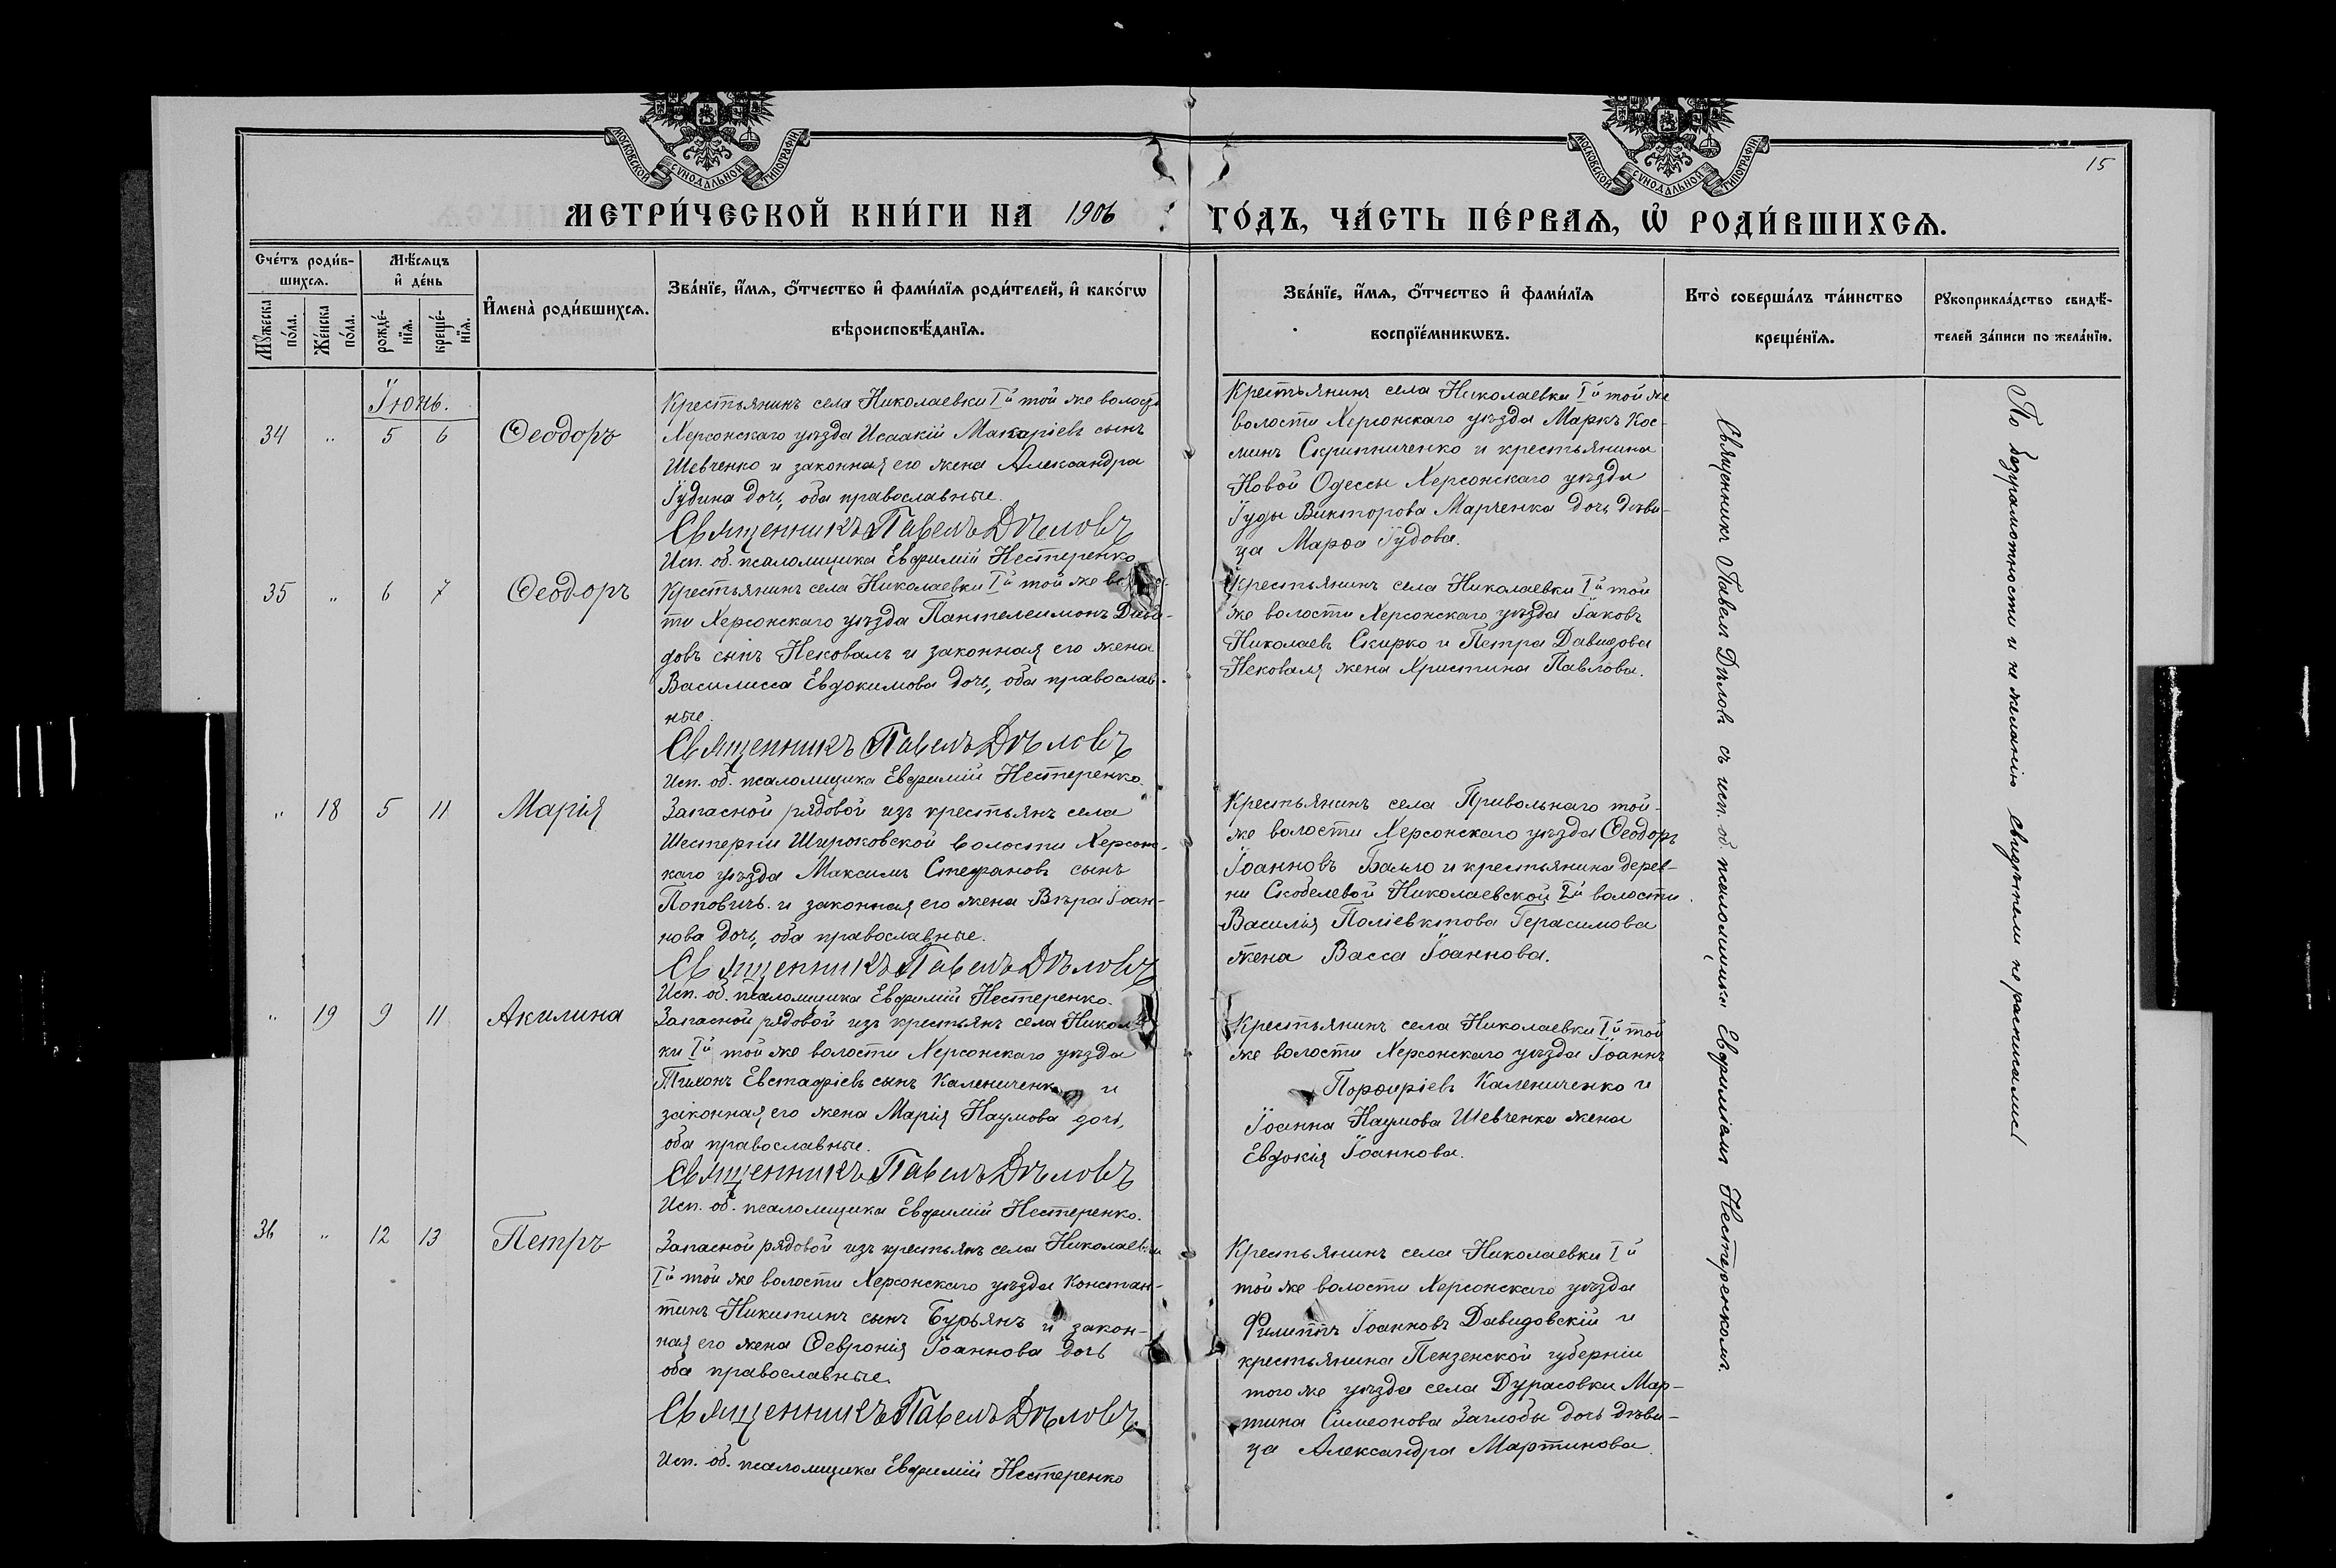 МОСКОВСКОЙ СУНОДАЛЬНОЙ ТИПОГРАФІИ
МОСКОВСКОЙ СУНОДАЛЬНОЙ ТИПОГРАФІИ
15
МЕТРИ́ЧЕСКОЙ КНИ́ГИ НА 1906 ГО́ДЪ, ЧА́СТЬ ПЕ́РВАЯ, Ѡ҆ РОДИ́ВШИХСЯ.
Сче́тъ роди́в-
шихся.
Мѣ́сяцъ
и҆ де́нь
Мꙋ́жеска по́ла.
Же́нска по́ла.
рожде́-
нїя.
креще́-
нїя.
И҆мена̀ роди́вшихся.
Зва́нїе, и҆́мя, ѻ҆́тчество и҆ фами́лїя роди́телей, и҆ како́гѡ
вѣроисповѣ́данїя.
Зва́нїе, и҆́мя, ѻ҆́тчество и҆ фами́лїя
воспрїе́мникѡвъ.
Кто̀ соверша́лъ та́инство
креще́нїя.
Рꙋкоприкла́дство свидѣ́-
телей за́писи по жела́нїю.
Їюнь.
34 " 5 6 Ѳеодоръ
Крестьянинъ села Николаевки Iй той же волости
Херсонскаго уѣзда Исаакій Макаріевъ сынъ
Шевченко и законная его жена Александра
Іудина дочь, оба православные.
Священникъ Павелъ Дѣловъ
Исп. об. псаломщика Евфимій Нестеренко
Крестьянинъ села Николаевки Iй той же
волости Херсонскаго уѣзда Маркъ Кос-
минъ Скрипниченко и крестьянина
Новой Одессы Херсонскаго уѣзда
Іуды Викторова Марченка дочь дѣви-
ца Марѳа Іудова.
35 " 6 7 Ѳеодоръ
Крестьянинъ села Николаевки Iй той же
ти Херсонскаго уѣзда Пантелеимонъ Дави-
довъ сынъ Нековаль и законная его жена
Василисса Евдокимова дочь, оба православ-
ные.
Священникъ Павелъ Дѣловъ
Исп. об. псаломщика Евфимій Нестеренко.
Крестьянинъ села Николаевки Iй той
же волости Херсонскаго уѣзда Іаковъ
Николаевъ Скирко и Петра Давидова
Нековаля жена Христина Павлова.
" 18 5 11 Марія
Запасной рядовой изъ крестьянъ села
Шестерни Широковской волости Херсонс-
каго уѣзда Максимъ Стефановъ сынъ
Поповичъ и законная его жена Вѣра Іоан-
нова дочь, оба православные.
Священникъ Павелъ Дѣловъ
Исп. об. псаломщика Евфимій Нестеренко.
Крестьянинъ села Привольнаго той-
же волости Херсонскаго уѣзда Ѳеодоръ
Іоанновъ Балло и крестьянина дерев-
ни Скобелевой Николаевской IIй волости
Василія Поліевктова Герасимова
жена Васса Іоаннова.
" 19 9 11 Акилина
Запасной рядовой изъ крестьянъ села
ки Iй той же волости Херсонскаго уѣзда
Тихонъ Евстафіевъ сынъ Калениченко и
законная его жена Марія Наумова дочь,
оба православные.
Священникъ Павелъ Дѣловъ
Исп. об. псаломщика Евфимій Нестеренко.
Крестьянинъ села Николаевки Iй той
же волости Херсонскаго уѣзда Іоаннъ
Порфиріевъ Калениченко и
Іоанна Наумова Шевченка жена
Евдокія Іоаннова.
36 " 12 13 Петръ
Запасной рядовой изъ крестьянъ села Николаевки
Iй той же волости Херсонскаго уѣзда Констан-
тинъ Никитинъ сынъ Бурьянъ и закон-
ная его жена Ѳевронія Іоаннова дочь
оба православные.
Священникъ Павелъ Дѣловъ
Исп. об. псаломщика Евфимій Нестеренко
Крестьянинъ села Николаевки Iй
той же волости Херсонскаго уѣзда
Филиппъ Іоанновъ Давидовскій и
крестьянина Пензенской губерніи
того же уѣзда села Дурасовки Мар-
тина Симеонова Заглобы дочь дѣви-
ца Александра Мартинова.
Священникъ Павелъ Дѣловъ съ исп. об. псаломщика Евфиміемъ Нестеренкомъ.
По безграмотности и не желанію свидѣтели не расписались